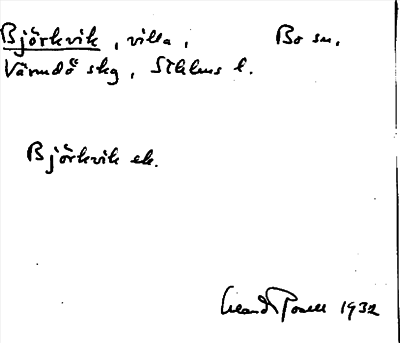 Björkvik, villa, Bo sn.
Värmdö skg, Sthlms l.
Björkvik ek.
1932